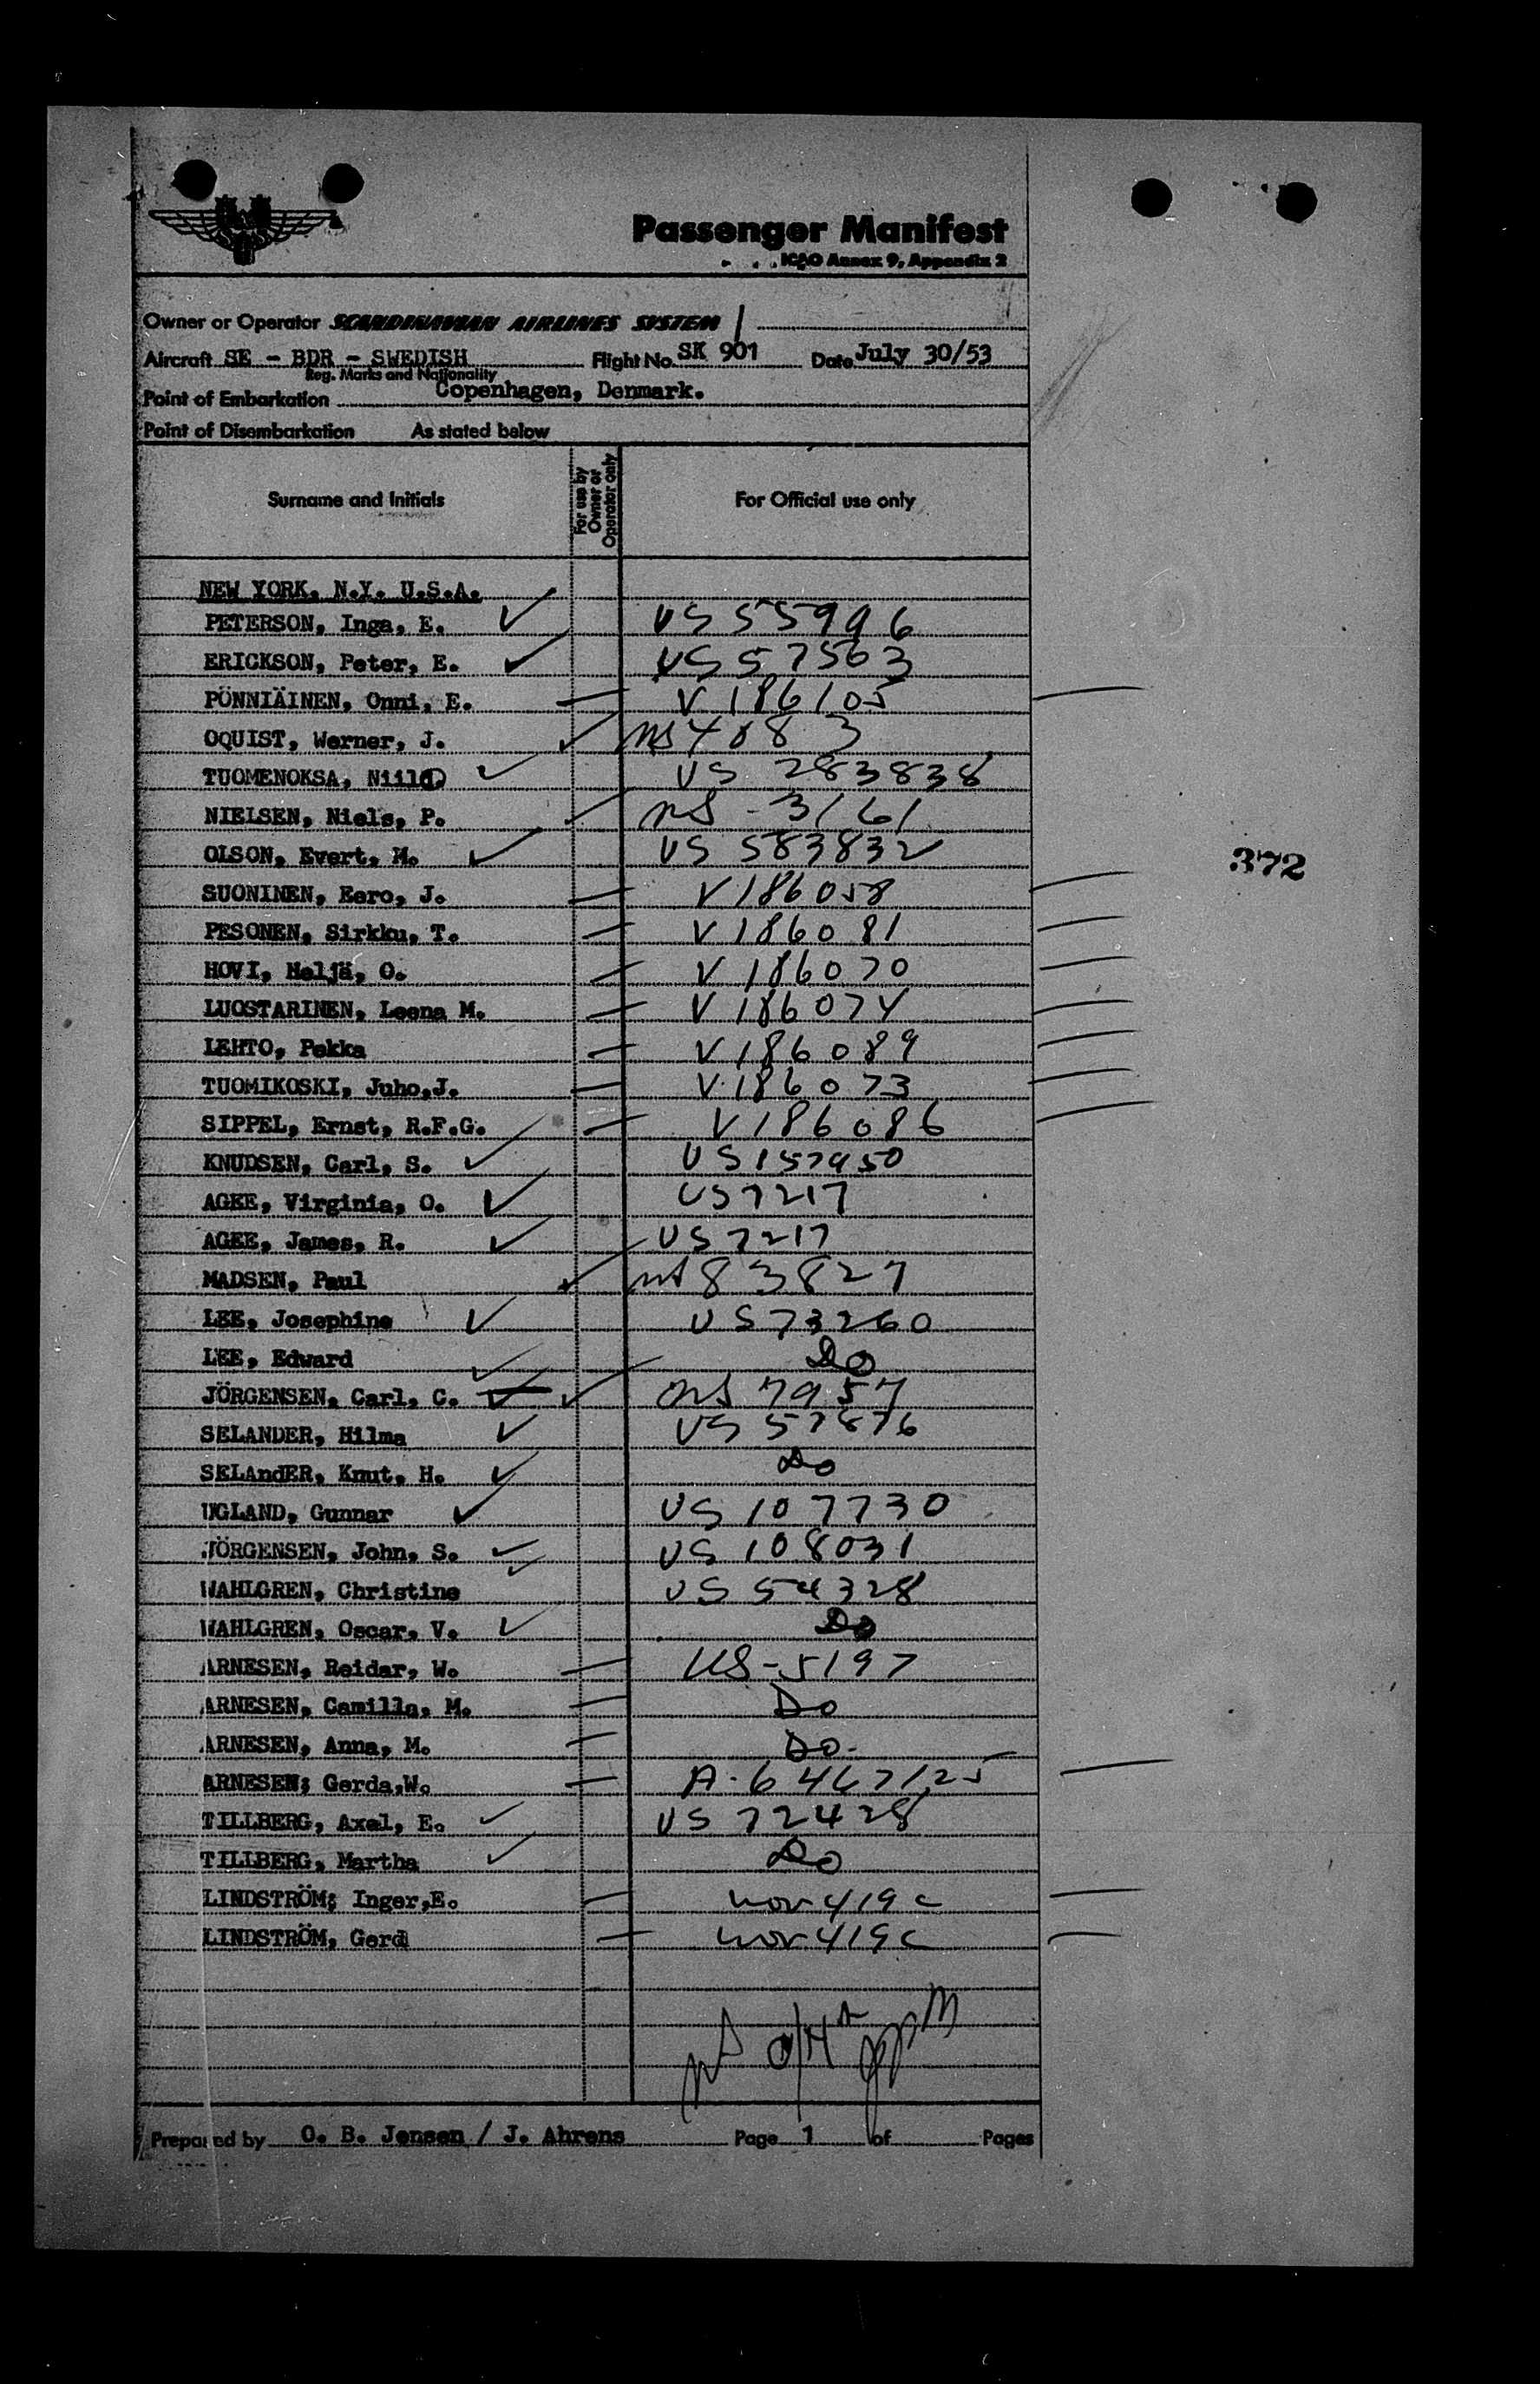 Passenger Manifest
ICAO Annex 9, Appendix 2
Owner or Operator SCANDINAVIAN AIRLINES SYSTEM
Aircraft SE - BDR - SWEDISH Flight No. SK 901 Date July 30/53
Reg. Marks and Nationality
Point of Embarkation Copenhagen, Denmark.
Point of Disembarkation As stated below
Surname and Initials For use by Owner or Operator only For Official use only
NEW YORK. N.Y. U.S.A.
PETERSON, Inga, E. ✓ US 55996
ERICKSON, Peter, E. ✓ US 57563
PÖNNIÄINEN, Onni, E. — V 186105
OQUIST, Werner, J. ✓
TUOMENOKSA, Niilo ✓ US 283838
NIELSEN, Niels, P. 3161
OLSON, Evert, M. ✓ US 583832
372
SUONINEN, Eero, J. — V 186058
PESONEN, Sirkku, T. — V 186081
HOVI, Heljä, O. — V 186070
LUOSTARINEN, Leena M. — V 186074
LEHTO, Pekka — V 186089
TUOMIKOSKI, Juho,J. — V 186073
SIPPEL, Ernst, R.F.G. — V 186086
KNUDSEN, Carl, S. ✓ US 157950
AGEE, Virginia, O. ✓ US 7217
AGEE, James, R. ✓ US 7217
MADSEN, Paul ✓ 83827
LEE, Josephine ✓ US 73260
LEE, Edward ✓ Do
JÖRGENSEN, Carl, C. ✓ 7957
SELANDER, Hilma ✓ US 57876
SELAndER, Knut, H. ✓ Do
UGLAND, Gunnar ✓ US 107730
JÖRGENSEN, John, S. ✓ US 108031
WAHLGREN, Christine ✓ US 54328
WAHLGREN, Oscar, V. ✓ Do
ARNESEN, Reidar, W. — US-5197
ARNESEN, Camilla, M. — Do
ARNESEN, Anna, M. — Do.
ARNESEN; Gerda,W. — A-6467125
TILLBERG, Axel, E. ✓ US 72428
TILLBERG, Martha ✓ Do
LINDSTRÖM; Inger,E. — 419c
LINDSTRÖM, Gerd — 419c
Prepared by O. B. Jensen / J. Ahrens Page 1 of Pages